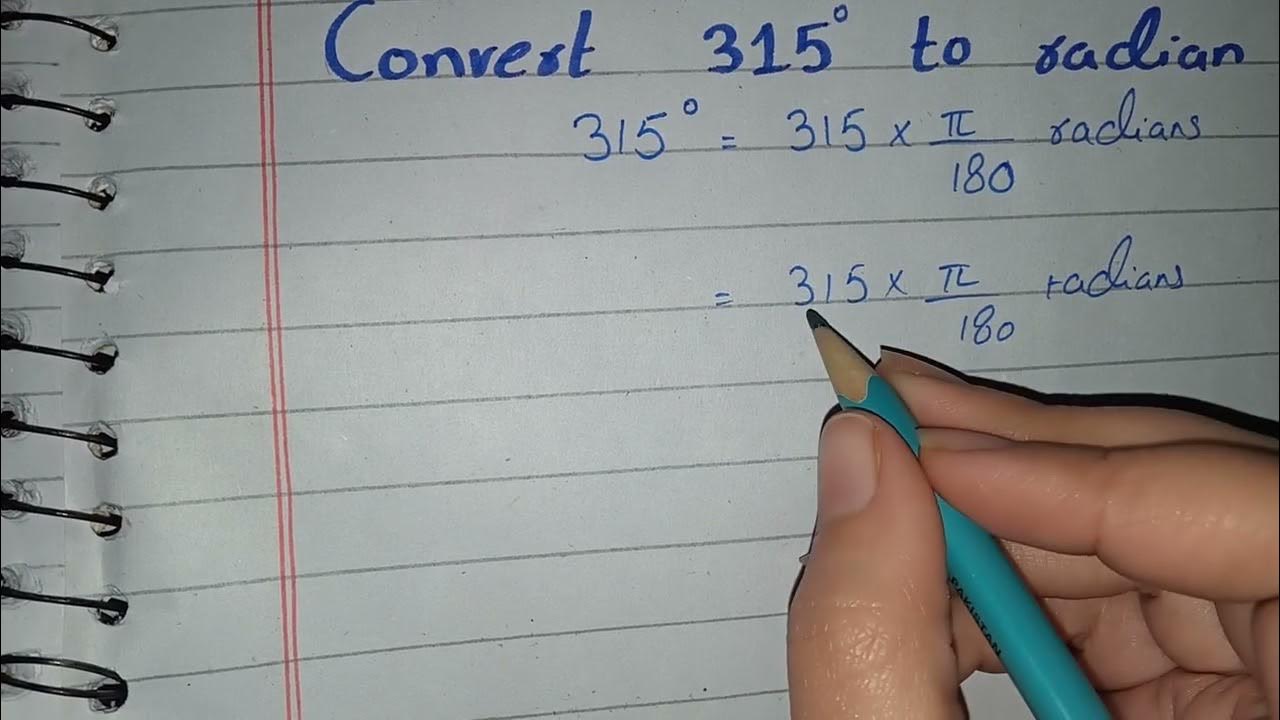 Convert 315° to radian
315° = 315 × π/180 radians
= 315 × π/180 radians
PAKISTAN